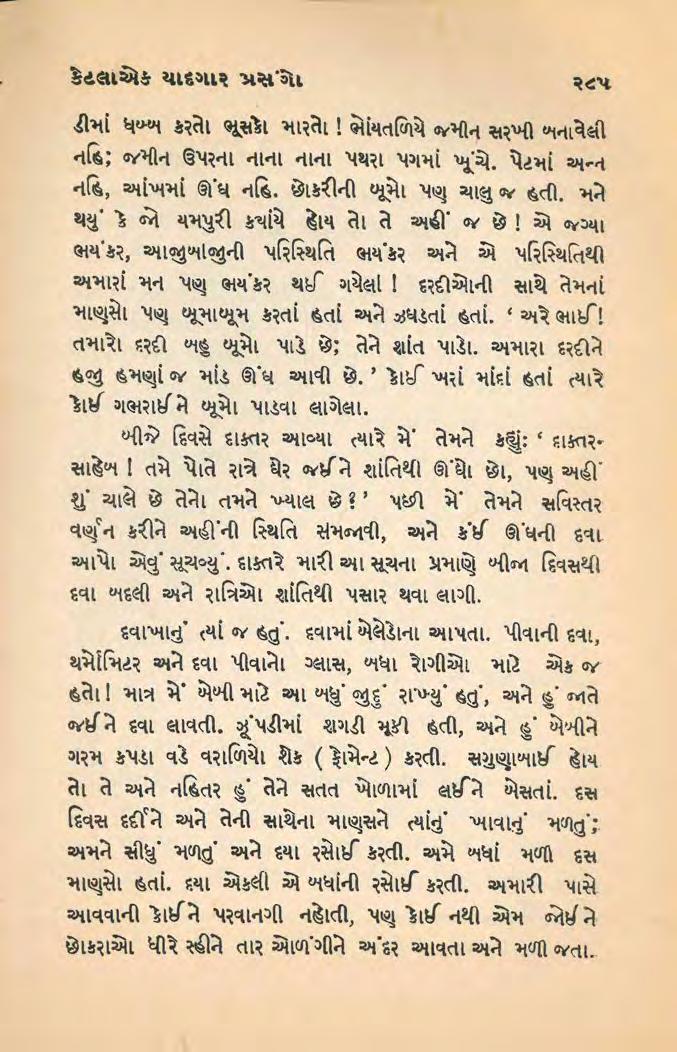 કેટલાએક યાદગાર પ્રસંગો ૨૮૫
ડીમાં ધબ્બ કરતો ભૂસકો મારતો ! ભોંયતળિયે જમીન સરખી બનાવેલી
નહિ; જમીન ઉપરના નાના નાના પથરા પગમાં ખૂંચે. પેટમાં અન્ન
નહિ, આંખમાં ઊંઘ નહિ. છોકરીની બૂમો પણ ચાલુ જ હતી. મને
થયું કે જો યમપુરી ક્યાંયે હોય તો તે અહીં જ છે ! એ જગ્યા
ભયંકર, આજુબાજુની પરિસ્થિતિ ભયંકર અને એ પરિસ્થિતિથી
અમારાં મન પણ ભયંકર થઈ ગયેલાં ! દરદીઓની સાથે તેમનાં
માણસો પણ બૂમાબૂમ કરતાં હતાં અને ઝઘડતાં હતાં. ‘ અરે ભાઈ!
તમારો દરદી બહુ બૂમો પાડે છે; તેને શાંત પાડો. અમારા દરદીને
હજુ હમણાં જ માંડ ઊંઘ આવી છે. ’ કોઈ ખરાં માંદાં હતાં ત્યારે
કોઈ ગભરાઈને બૂમો પાડવા લાગેલા.
બીજે દિવસે દાક્તર આવ્યા ત્યારે મેં તેમને કહ્યું: ‘ દાક્તર-
સાહેબ ! તમે પોતે રાત્રે ઘેર જઈને શાંતિથી ઊંઘો છો, પણ અહીં
શું ચાલે છે તેનો તમને ખ્યાલ છે ? ’ પછી મેં તેમને સવિસ્તર
વર્ણન કરીને અહીંની સ્થિતિ સમજાવી, અને કંઈ ઊંઘની દવા
આપો એવું સૂચવ્યું. દાક્તરે મારી આ સૂચના પ્રમાણે બીજા દિવસથી
દવા બદલી અને રાત્રિઓ શાંતિથી પસાર થવા લાગી.
દવાખાનું ત્યાં જ હતું. દવામાં બેલેડોના આપતા. પીવાની દવા,
થર્મોમિટર અને દવા પીવાનો ગ્લાસ, બધા રોગીઓ માટે એક જ
હતો ! માત્ર મેં બેબી માટે આ બધું જુદું રાખ્યું હતું, અને હું જાતે
જઈને દવા લાવતી. ઝૂંપડીમાં શગડી મૂકી હતી, અને હું બેબીને
ગરમ કપડા વડે વરાળિયો શેક ( ફોમેન્ટ ) કરતી. સગુણાબાઈ હોય
તો તે અને નહિતર હું તેને સતત ખોળામાં લઈને બેસતાં. દસ
દિવસ દર્દીને અને તેની સાથેના માણસને ત્યાંનું ખાવાનું મળતું;
અમને સીધું મળતું અને દયા રસોઈ કરતી. અમે બધાં મળી દસ
માણસો હતાં. દયા એકલી એ બધાંની રસોઈ કરતી. અમારી પાસે
આવવાની કોઈને પરવાનગી નહોતી, પણ કોઈ નથી એમ જોઈને
છોકરાઓ ધીરે રહીને તાર ઓળંગીને અંદર આવતા અને મળી જતા.